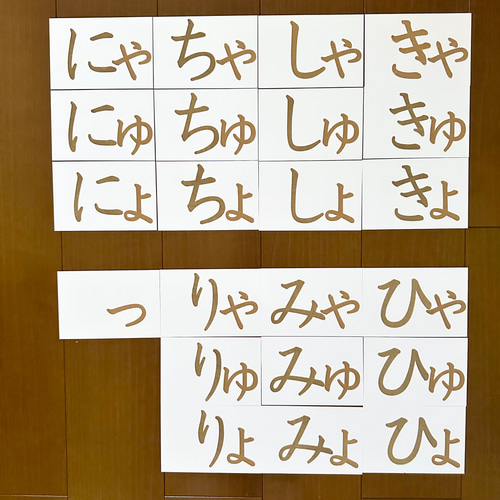 きゃ しゃ ちゃ にゃ
きゅ しゅ ちゅ にゅ
きょ しょ ちょ にょ
ひゃ みゃ りゃ っ
ひゅ みゅ りゅ
ひょ みょ りょ